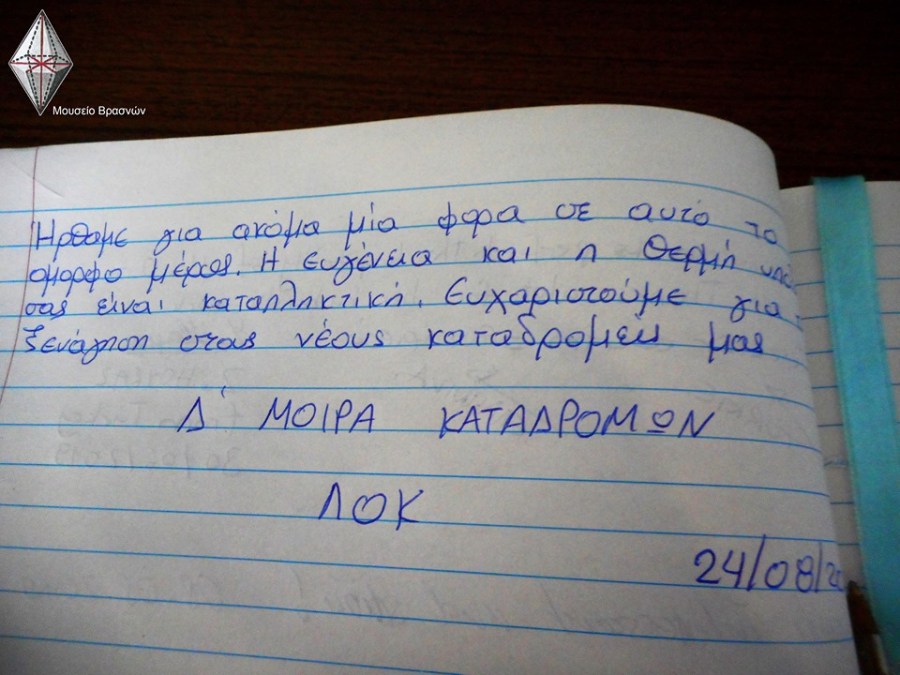 Μουσείο Βρασνών
Ήρθαμε για ακόμα μία φορα σε αυτό το
όμορφο μέρος. Η ευγένεια και η θερμή
σας είναι καταλληκτική. Ευχαριστούμε για
ξενάγηση στους νέους καταδρομείς μας
Δ' ΜΟΙΡΑ ΚΑΤΑΔΡΟΜΩΝ
ΛΟΚ
24/08/20